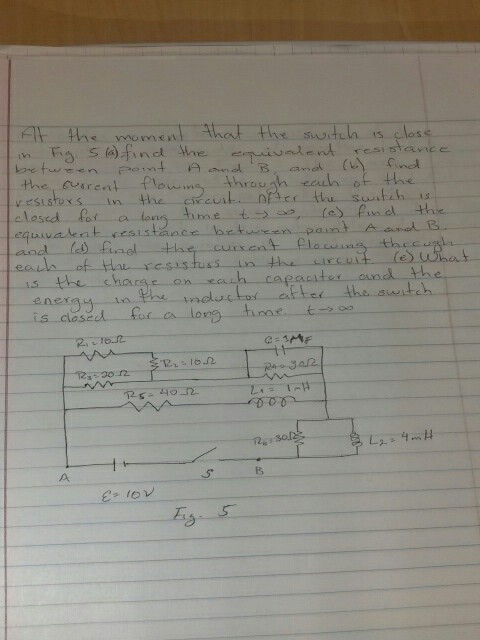 At the moment that the switch is close
in Fig 5 (a) find the equivalent resistance
between point A and B, and (b) find
the current flowing through each of the
resistors in the circuit. After the switch is
closed for a long time t→∞, (c) find the
equivalent resistance between point A and B.
and (d) find the current flowing through
each of the resistors in the circuit (e) What
is the charge on each capacitor and the
energy in the inductor after the switch
is closed for a long time t→∞
R1=10Ω
C=1μF
R2=10Ω
R3=20Ω
R4=30Ω
R5=40Ω
L1=1mH
R6=30Ω
L2=4mH
A
S
B
ε=10V
Fig. 5